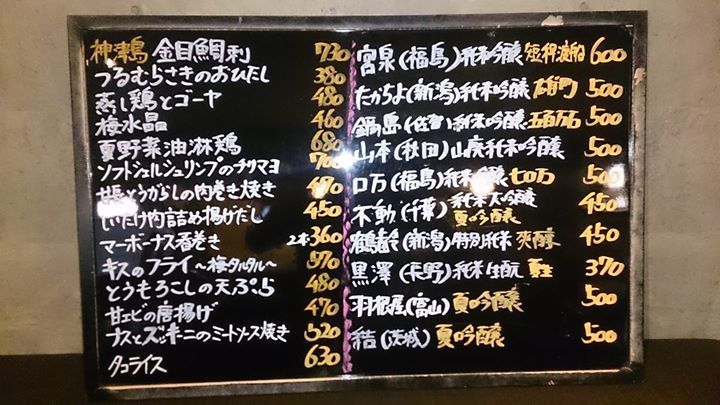 神津島 金目鯛刺 730
つるむらさきのおひたし 380
蒸し鶏とゴーヤ 480
梅水晶 460
夏野菜油淋鶏 680
ソフトシェルシュリンプのチリマヨ 700
甘長とうがらしの肉巻き焼き 470
しいたけ肉詰め揚げだし 450
マーボーナス春巻き 2本360
キスのフライ〜梅タルタル〜 570
とうもろこしの天ぷら 480
甘エビの唐揚げ 470
ナスとズッキーニのミートソース焼き 520
タコライス 630
宮泉(福島)純米吟醸 短稈渡船 600
たかちよ(新潟)純米吟醸 雄町 500
鍋島(佐賀)純米吟醸 五百万石 500
山本(秋田)山廃純米吟醸 500
ロ万(福島)純米吟醸 七ロ万 500
不動(千葉)純米大吟醸 夏吟醸 450
鶴齢(新潟)特別純米 爽醇 450
黒澤(長野)純米生酛 夏生 370
羽根屋(富山)夏吟醸 500
結(茨城)夏吟醸 500